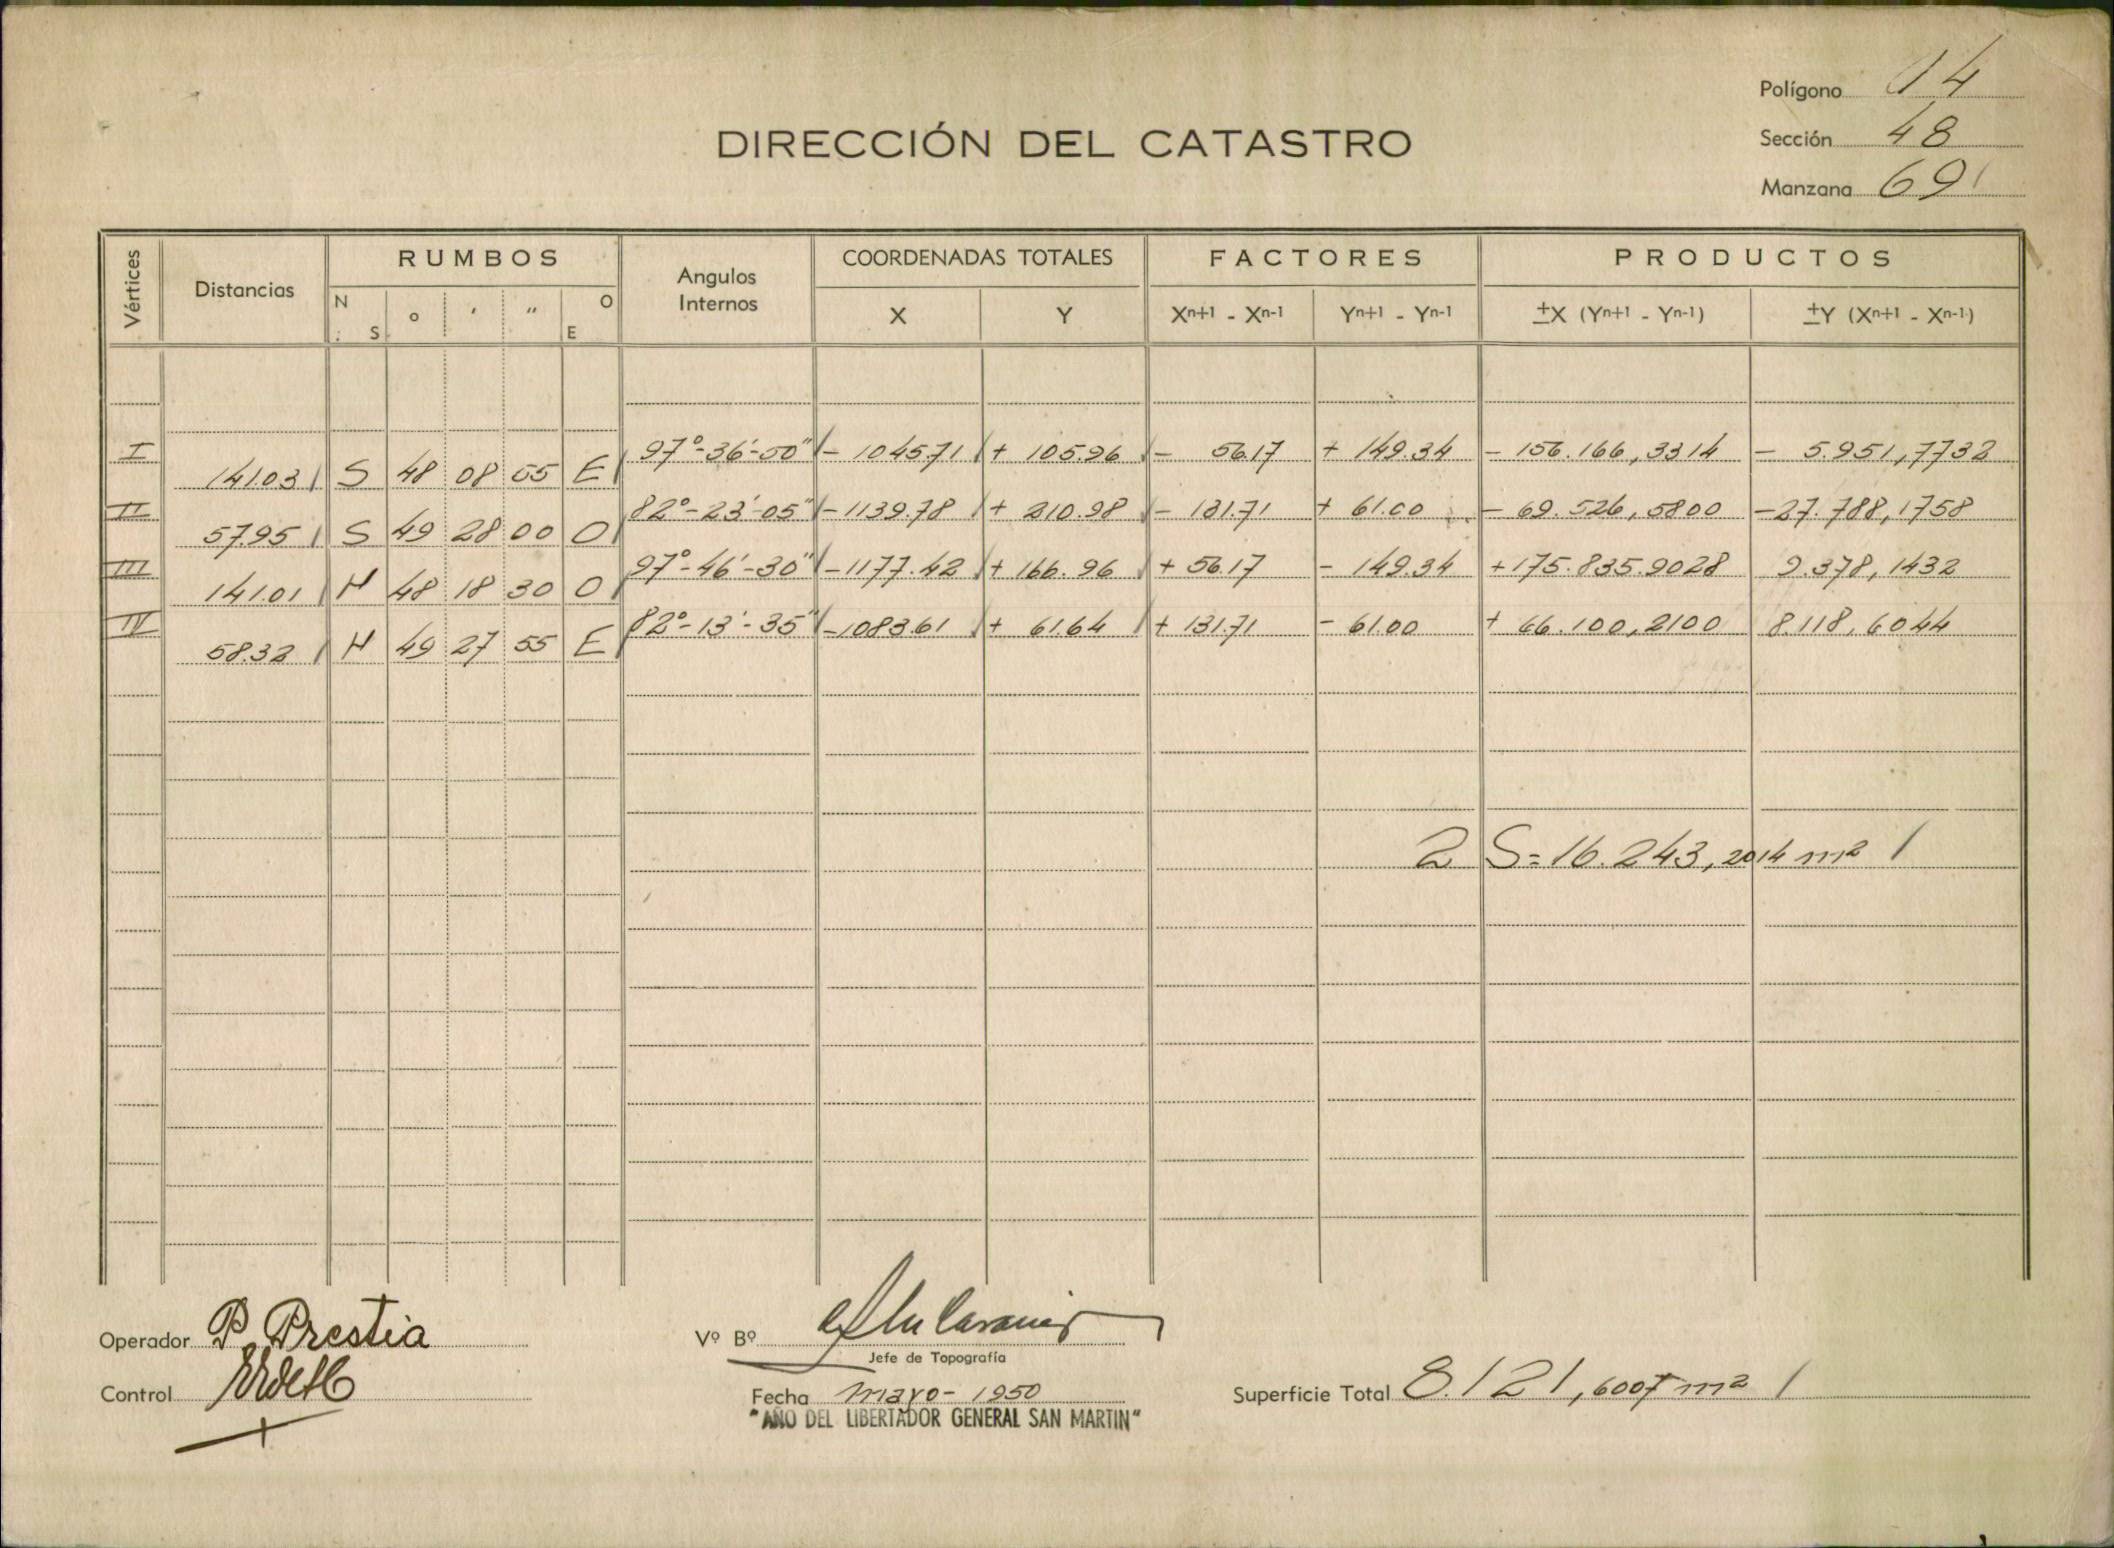 Polígono 14
DIRECCIÓN DEL CATASTRO
Sección 48
Manzana 69
Vértices Distancias RUMBOS Angulos Internos COORDENADAS TOTALES FACTORES PRODUCTOS
N S ° ' " O E X Y Xn+1 - Xn-1 Yn+1 - Yn-1 ±X (Yn+1 - Yn-1) ±Y (Xn+1 - Xn-1)
I 97°-36'-50" - 1045.71 + 105.96 - 56.17 + 149.34 - 156.166,3314 - 5.951,7732
141.03 S 48 08 55 E
II 82°-23'-05" - 1139.78 + 210.98 - 131.71 + 61.00 - 69.526,5800 - 27.788,1758
57.95 S 49 28 00 O
III 97°-46'-30" - 1177.42 + 166.96 + 56.17 - 149.34 + 175.835.9028 9.378,1432
141.01 N 48 18 30 O
IV 82°-13'-35" - 1083.61 + 61.64 + 131.71 - 61.00 + 66.100,2100 8.118,6044
58.32 N 49 27 55 E
2 S = 16.243,2014 m2
Operador P. Prestia
Vº Bº
Jefe de Topografía
Control
Fecha mayo - 1950
Superficie Total 8.121,6007 m2
"AÑO DEL LIBERTADOR GENERAL SAN MARTIN"